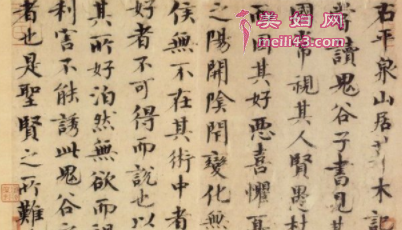 美妇网
meili43.com
右平泉山居草木記
嘗讀鬼谷子書見其
國常視其人賢愚材
而因其好惡喜懼憂
之陽開陰閉變化無
侯無不在其術中者
好者不可得而說也以
其所好泊然無欲而禍
利害不能誘此鬼谷之
者也是聖賢之所難